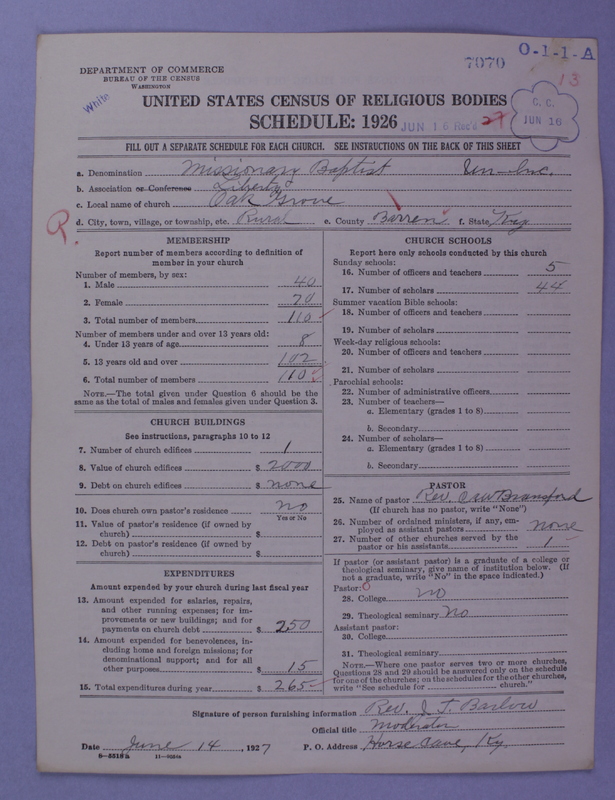 7070
O-1-1-A
13
DEPARTMENT OF COMMERCE
BUREAU OF THE CENSUS
WASHINGTON
White
UNITED STATES CENSUS OF RELIGIOUS BODIES
SCHEDULE: 1926
JUN 16 Rec'd 27
C. C.
JUN 16
FILL OUT A SEPARATE SCHEDULE FOR EACH CHURCH. SEE INSTRUCTIONS ON THE BACK OF THIS SHEET
a. Denomination Missionary Baptist Un-Inc.
b. Association or Conference Liberty
c. Local name of church Oak Grove
d. City, town, village, or township, etc. Rural e. County Barren f. State Ky
R.
MEMBERSHIP
Report number of members according to definition of
member in your church
Number of members, by sex:
1. Male 40
2. Female 70
3. Total number of members 110
Number of members under and over 13 years old:
4. Under 13 years of age 8
5. 13 years old and over 102
6. Total number of members 110
NOTE.—The total given under Question 6 should be the
same as the total of males and females given under Question 3.
CHURCH BUILDINGS
See instructions, paragraphs 10 to 12
7. Number of church edifices 1
8. Value of church edifices $ 2000
9. Debt on church edifices $ none
10. Does church own pastor's residence no
Yes or No
11. Value of pastor's residence (if owned by
church) $
12. Debt on pastor's residence (if owned by
church) $
EXPENDITURES
Amount expended by your church during last fiscal year
13. Amount expended for salaries, repairs,
and other running expenses; for im-
provements or new buildings; and for
payments on church debt $ 250
14. Amount expended for benevolences, in-
cluding home and foreign missions; for
denominational support; and for all
other purposes $ 15
15. Total expenditures during year $ 265
CHURCH SCHOOLS
Report here only schools conducted by this church
Sunday schools:
16. Number of officers and teachers 5
17. Number of scholars 44
Summer vacation Bible schools:
18. Number of officers and teachers
19. Number of scholars
Week-day religious schools:
20. Number of officers and teachers
21. Number of scholars
Parochial schools:
22. Number of administrative officers
23. Number of teachers—
a. Elementary (grades 1 to 8)
b. Secondary
24. Number of scholars—
a. Elementary (grades 1 to 8)
b. Secondary
PASTOR
25. Name of pastor Rev. Bransford
(If church has no pastor, write "None")
26. Number of ordained ministers, if any, em-
ployed as assistant pastors none
27. Number of other churches served by the
pastor or his assistants 1
If pastor (or assistant pastor) is a graduate of a college or
theological seminary, give name of institution below. (If
not a graduate, write "No" in the space indicated.)
Pastor: 0
28. College no
29. Theological seminary No
Assistant pastor:
30. College
31. Theological seminary
NOTE.—Where one pastor serves two or more churches,
Questions 28 and 29 should be answered only on the schedule
for one of the churches; on the schedules for the other churches,
write "See schedule for church."
Signature of person furnishing information Rev. J. T. Barlow
Official title Moderator
Date June 14, 1927 P. O. Address Horse Cave, Ky.